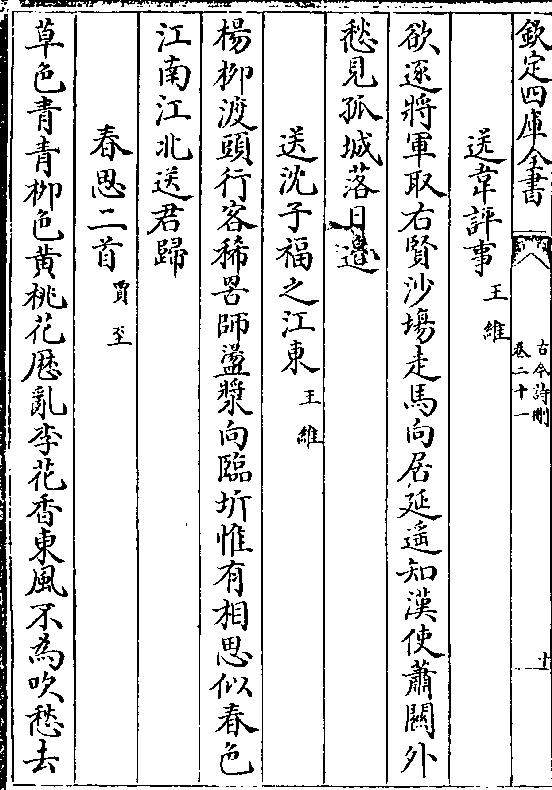 欽定四庫全書
古今詩刪
卷二十一
十
送韋評事 王維
欲逐將軍取右賢沙塲走馬向居延遥知漢使蕭闗外
愁見孤城落日邉
送沈子福之江東 王維
楊柳渡頭行客稀罟師盪槳向臨圻惟有相思似春色
江南江北送君歸
春思二首 賈至
草色青青柳色黄桃花厯亂李花香東風不為吹愁去